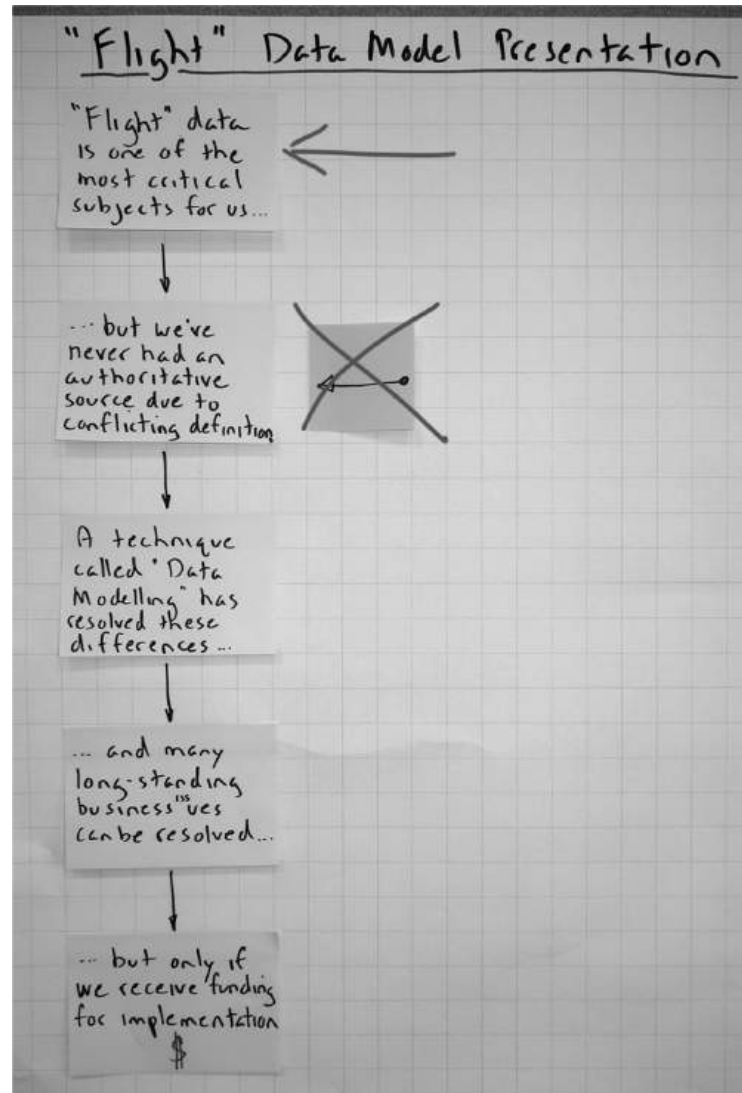 "Flight" Data Model Presentation
"Flight" data
is one of the
most critical
subjects for us...
... but we've
never had an
authoritative
source due to
conflicting definition
A technique
called "Data
Modelling" has
resolved these
differences ...
... and many
long-standing
business issues
can be resolved...
... but only if
we receive funding
for implementation
$